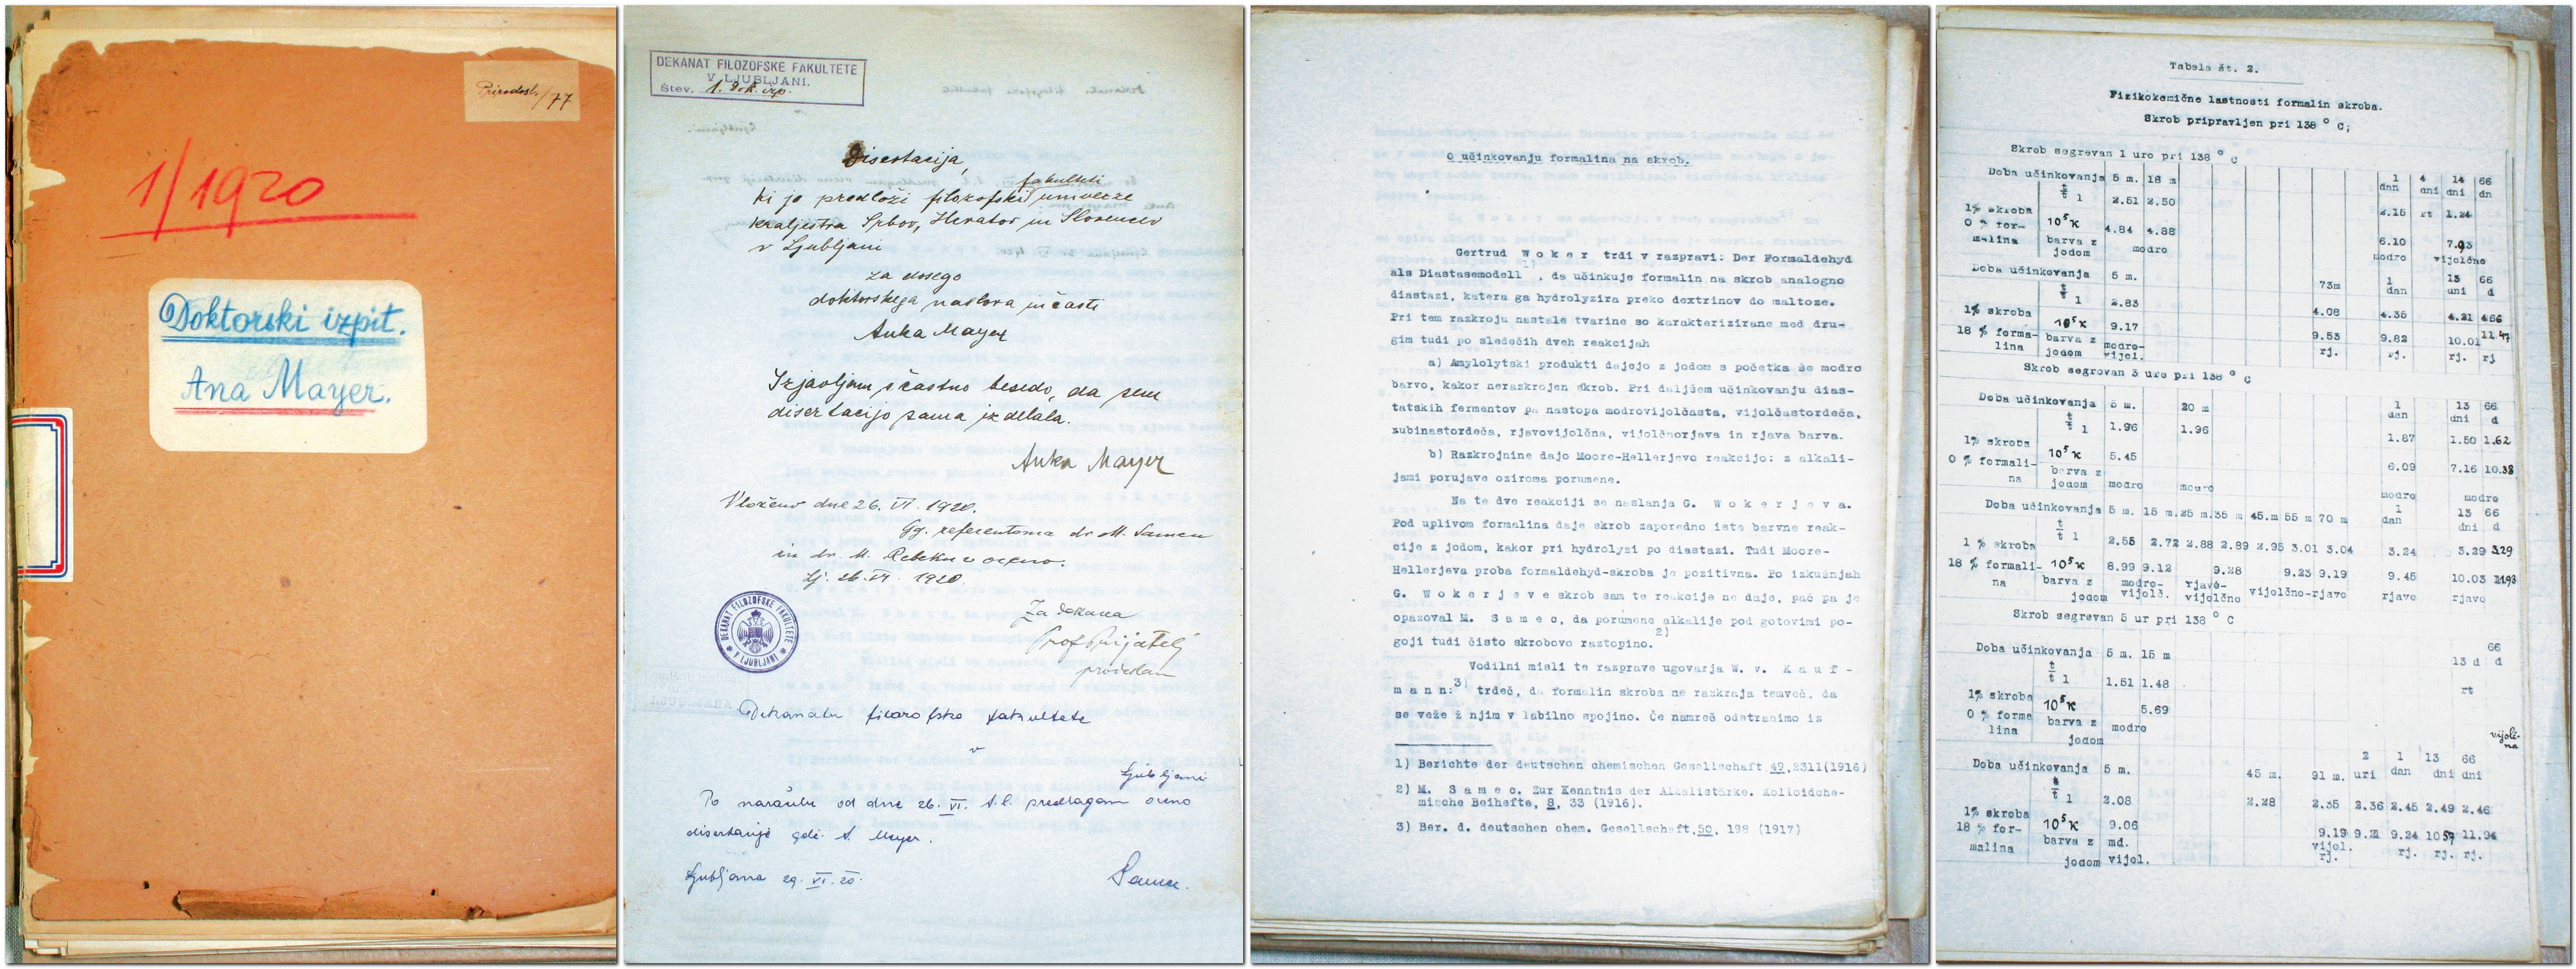 Prirodosl./77
1/1920
Doktorski izpit.
Ana Mayer.
DEKANAT FILOZOFSKE FAKULTETE
V LJUBLJANI.
Štev. 1. Dok. izp.
Disertacija,
fakulteti
ki jo predloži filozofski univerze
kraljestva Srbov, Hrvatov in Slovencev
v Ljubljani
za dosego
doktorskega naslova in časti
Anka Mayer
Izjavljam s častno besedo, da sem
disertacijo sama izdelala.
Anka Mayer
Vloženo dne 26. VI. 1920.
Gg. referentoma dr. M. Samcu
in dr. M. Rebeku v oceno.
Lj. 26. VI. 1920.
Za dekana
Prof Prijatelj
prodekan
DEKANAT FILOZOFSKE FAKULTETE
V LJUBLJANI
Dekanatu filozofske fakultete
v
Ljubljani
Po naročilu od dne 26. VI. t.l. predlagam oceno
disertacije gdč. A. Mayer.
Ljubljana 29. VI. 20.
Samec.
O učinkovanju formalina na skrob.
Gertrud W o k e r trdi v razpravi: Der Formaldehyd
als Diastasemodell 1), da učinkuje formalin na skrob analogno
diastazi, katera ga hydrolyzira preko dextrinov do maltoze.
Pri tem razkroju nastale tvarine so karakterizirane med dru-
gim tudi po sledečih dveh reakcijah
a) Amylolytski produkti dajejo z jodom s početka še modro
barvo, kakor nerazkrojen škrob. Pri daljšem učinkovanju dias-
tatskih fermentov pa nastopa modrovijolčasta, vijolčastordeča,
rubinastordeča, rjavovijolčna, vijolčnorjava in rjava barva.
b) Razkrojnine dajo Moore-Hellerjevo reakcijo: z alkali-
jami porujave oziroma porumene.
Na te dve reakciji se naslanja G. W o k e r j e v a.
Pod uplivom formalina daje skrob zaporedno iste barvne reak-
cije z jodom, kakor pri hydrolyzi po diastazi. Tudi Moore-
Hellerjeva proba formaldehyd-skroba je pozitivna. Po izkušnjah
G. W o k e r j e v e skrob sam te reakcije ne daje, pač pa je
opazoval M. S a m e c, da porumene alkalije pod gotovimi po-
goji tudi čisto skrobovo raztopino. 2)
Vodilni misli te razprave ugovarja W. v. K a u f -
m a n n: 3) trdeč, da formalin skroba ne razkraja temveč, da
se veže ž njim v labilno spojino. Če namreč odstranimo iz
1) Berichte der deutschen chemischen Gesellschaft,49,2311(1916)
2) M. S a m e c. Zur Kenntnis der Alkalistärke. Kolloidche-
mische Beihefte, 8, 33 (1916).
3) Ber. d. deutschen chem. Gesellschaft,50, 198 (1917)
Tabela št. 2.
Fizikokemične lastnosti formalin skroba.
Skrob pripravljen pri 138 ° C;
Skrob segrevan 1 uro pri 138 ° C
Doba učinkovanja 5 m. 18 m 1 dan 4 dni 14 dni 66 dn
t/t 1 2.51 2.50 2.15 rt 1.24
1% skroba
0 % for-
malina
10⁵κ 4.84 4.88 6.10 7.03
barva z jodom modro modro vijolčno
Doba učinkovanja 5 m. 73m 1 dan 13 dni 66 d
t/t 1 2.83 4.08 4.35 4.21 4.66
1% skroba
18 % forma-
lina
10⁵κ 9.17 9.53 9.82 10.01 11.47
barva z jodom modro-vijol. rj. rj. rj. rj
Skrob segrevan 3 ure pri 138 ° C
Doba učinkovanja 5 m. 20 m 1 dan 13 dni 66 d
t/t 1 1.96 1.96 1.87 1.50 1.62
1% skroba
0 % formali-
na
10⁵κ 5.45 6.09 7.16 10.38
barva z jodom modro modro modro modro
Doba učinkovanja 5 m. 15 m. 25 m. 35 m 45.m 55 m 70 m 1 dan 13 dni 66 d
t/t 1 2.55 2.72 2.88 2.89 2.95 3.01 3.04 3.24 3.29 3.29
1 % skroba
18 % formali-
na
10⁵κ 8.99 9.12 9.28 9.23 9.19 9.45 10.03 11.98
barva z jodom modro-vijolč. rjavo-vijolčno vijolčno-rjavo rjavo rjavo
Skrob segrevan 5 ur pri 138 ° C
Doba učinkovanja 5 m. 15 m 13 d 66 d
t/t 1 1.51 1.48 rt
1% skroba
0 % forma
lina
10⁵κ 5.69
barva z jodom modro vijolč-na
Doba učinkovanja 5 m. 45 m. 91 m. 2 uri 1 dan 13 dni 66 dni
t/t 1 2.08 2.28 2.35 2.36 2.45 2.49 2.46
1% skroba
18 % for-
malina
10⁵κ 9.06 9.19 9.21 9.24 10.57 11.94
barva z jodom md. vijol. vijol. rj. rj. rj. rj.